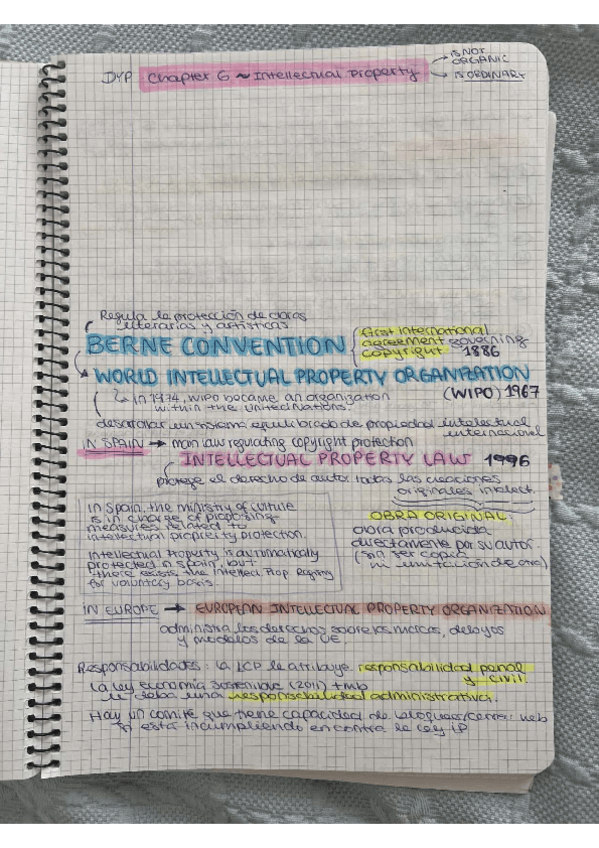 DYP Chapter 6 ~ Intellectual Property
is NOT
ORGANIC
is ORDINARY
Regula la protección de obras
literarias y artísticas
BERNE CONVENTION
first international
agreement governing
copyright 1886
WORLD INTELLECTUAL PROPERTY ORGANIZATION
(WIPO) 1967
in 1974, WIPO became an organization
within the United Nations.
desarrollar un sistema equilibrado de propiedad intelectual
internacional
IN SPAIN → main law regulating copyright protection
INTELLECTUAL PROPERTY LAW 1996
protege el derecho de autor todas las creaciones
originales intelect.
In Spain, the ministry of culture
is in charge of proposing
measures related to
intellectual property protection.
Intellectual Property is automatically
protected in Spain, but
there exists the Intellect Prop Registry
for voluntary basis
OBRA ORIGINAL
obra producida
directamente por su autor
(sin ser copia
ni imitación de otra)
IN EUROPE → EUROPEAN INTELLECTUAL PROPERTY ORGANIZATION
administra los derechos sobre las marcas, dibujos
y modelos de la UE.
Responsabilidades: la LCP le atribuye responsabilidad penal
y civil.
La ley economía sostenible (2011) tmb
le daba una responsabilidad administrativa.
Hay un comité que tiene capacidad de bloquear/cerrar web
si está incumpliendo en contra la ley IP